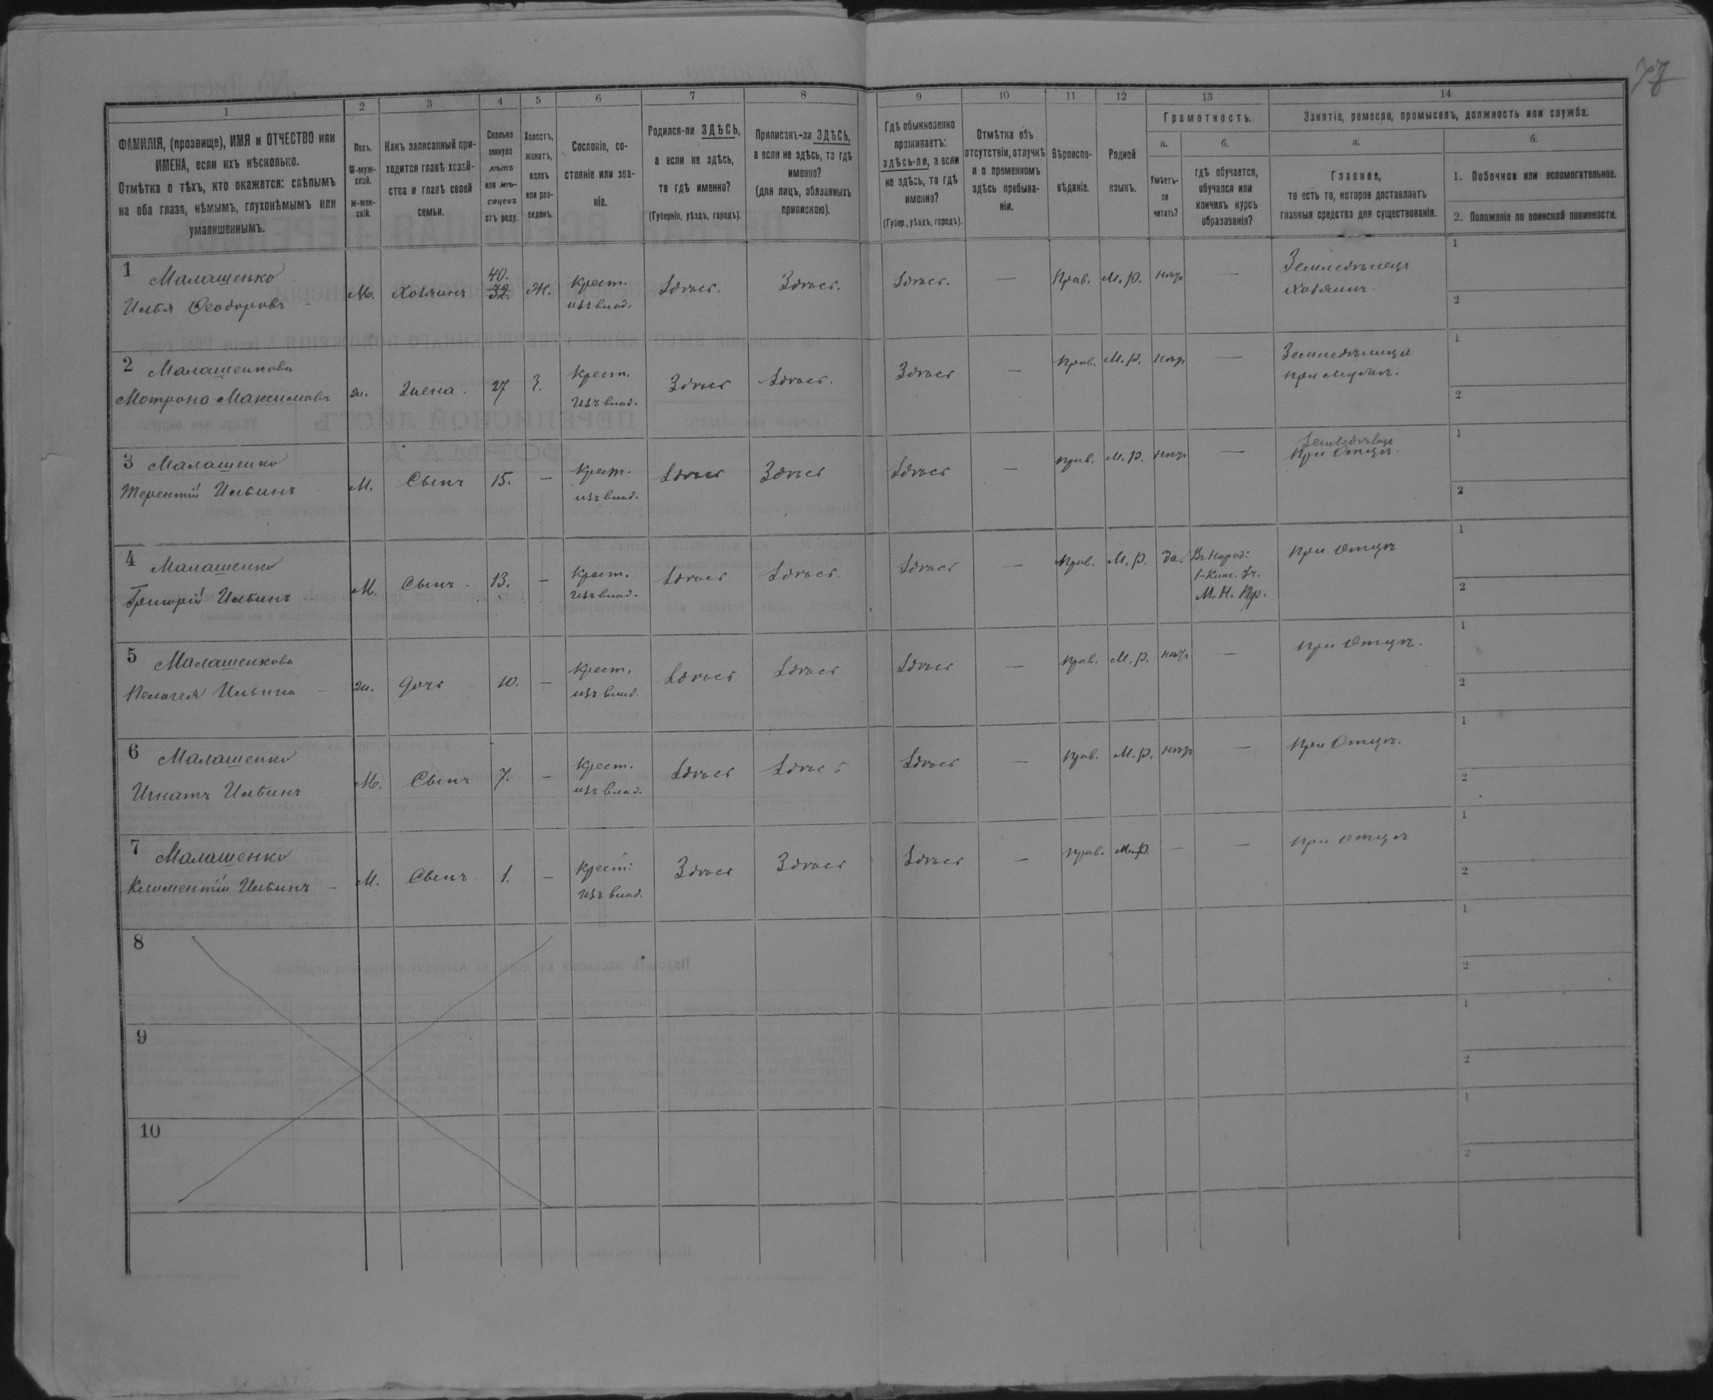 78
1
2
3
4
5
6
7
8
9
10
11
12
13
14
ФАМИЛІЯ, (прозвище), ИМЯ и ОТЧЕСТВО или
ИМЕНА, если ихъ нѣсколько.
Отмѣтка о тѣхъ, кто окажется: слѣпымъ
на оба глаза, нѣмымъ, глухонѣмымъ или
умалишеннымъ.
Полъ.
М-муж-
ской.
Ж-жен-
скій.
Какъ записанный при-
ходится главѣ хозяй-
ства и главѣ своей
семьи.
Сколько
минуло
лѣтъ
или мѣ-
сяцевъ
отъ роду.
Холостъ,
женатъ,
вдовъ
или раз-
веденъ.
Сословіе, со-
стояніе или зва-
ніе.
Родился-ли ЗДѢСЬ,
а если не здѣсь,
то гдѣ именно?
(Губернія, уѣздъ, городъ).
Приписанъ-ли ЗДѢСЬ,
а если не здѣсь, то гдѣ
именно?
(для лицъ, обязанныхъ
припискою).
Гдѣ обыкновенно
проживаетъ:
здѣсь-ли, а если
не здѣсь, то гдѣ
именно?
(Губер., уѣздъ, городъ).
Отмѣтка объ
отсутствіи, отлучкѣ
и о временномъ
здѣсь пребыва-
ніи.
Вѣроиспо-
вѣданіе.
Родной
языкъ.
Грамотность.
а.
Умѣетъ-
ли
читать?
б.
гдѣ обучается,
обучался или
кончилъ курсъ
образованія?
Занятіе, ремесло, промыселъ, должность или служба.
а.
Главное,
то есть то, которое доставляетъ
главныя средства для существованія.
б.
1. Побочное или вспомогательное.
2. Положеніе по воинской повинности.
1 Малашенко
Илья Ѳеодоровъ
М. Хозяинъ 40. 32. Ж. Крест.
изъ влад.
Здѣсь. Здѣсь. Здѣсь. — Прав. М. р. нѣтъ — Земледѣлецъ
хозяинъ.
1
2
2 Малашенкова
Мотрона Максимова
ж. Жена. 27 З. Крест.
изъ влад.
Здѣсь Здѣсь. Здѣсь — Прав. М. р. нѣтъ — Земледѣлица
при мужѣ.
1
2
3 Малашенко
Терентій Ильинъ
М. Сынъ 15. — Крест.
изъ влад.
Здѣсь Здѣсь Здѣсь — Прав. М. р. нѣтъ — Земледѣлец
При отцѣ.
1
2
4 Малашенко
Григорій Ильинъ
М. Сынъ. 13. — Крест.
изъ влад.
Здѣсь Здѣсь. Здѣсь — Прав. М. р. да. Въ народ:
1-клас. Уч.
М. Н. Пр.
при отцѣ
1
2
5 Малашенкова
Пелагея Ильина
ж. Дочь 10. — Крест.
изъ влад.
Здѣсь Здѣсь Здѣсь — Прав. М. р. нѣтъ — при отцѣ.
1
2
6 Малашенко
Игнатъ Ильинъ
М. Сынъ 7. — Крест.
изъ влад.
Здѣсь Здѣсь Здѣсь — Прав. М. р. нѣтъ — при отцѣ.
1
2
7 Малашенко
Климентій Ильинъ
М. Сынъ 1. — Крест:
изъ влад.
Здѣсь Здѣсь Здѣсь — Прав. М. р. — — при отцѣ
1
2
8
1
2
9
1
2
10
1
2